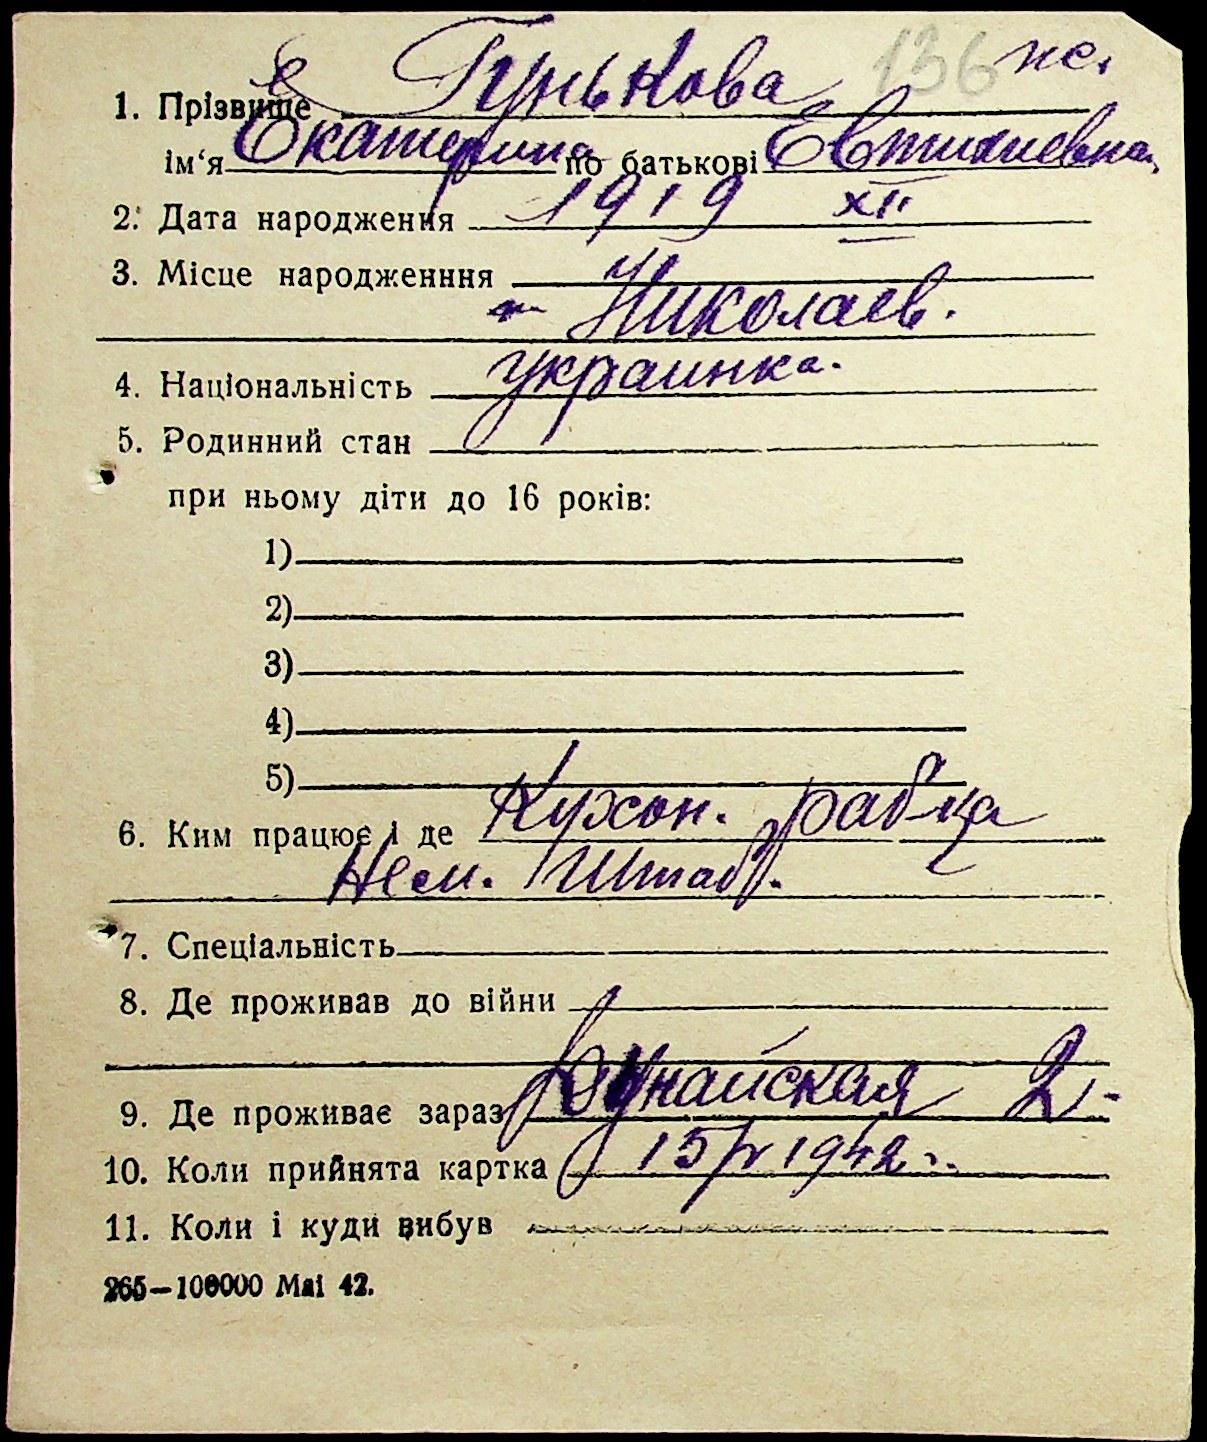 136 ж.
1. Прізвище Гунькова
ім‘я Екатерина по батькові Евтихиевна
2. Дата народження 1919 XII
3. Місце народженння
Николаев.
4. Національність украинка.
5. Родинний стан
при ньому діти до 16 років:
1)
2)
3)
4)
5)
6. Ким працює і де Кухон. раб-ца
Нем. Штаб.
7. Спеціальність
8. Де проживав до війни
9. Де проживає зараз Дунайская 2
10. Коли прийнята картка 1942
11. Коли і куди вибув
265—100000 Mai 42.